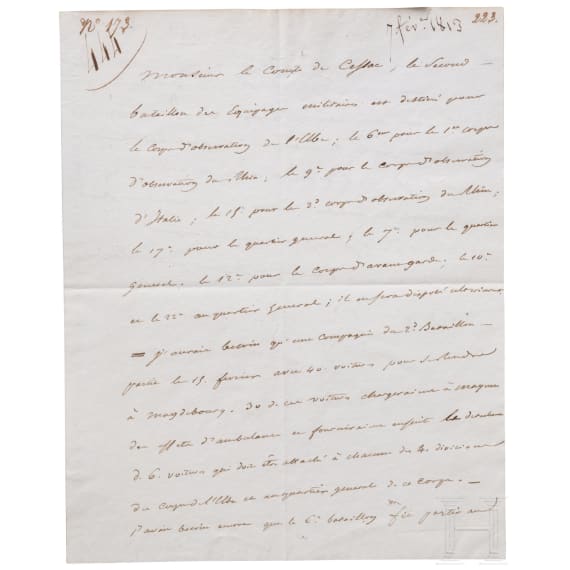 N° 173. 7 fév.er 1813 223.
444
Monsieur le Comte de Cessac, le Second
bataillon des Equipages militaires est destiné pour
le Corps d'observation de l'Elbe; le 6.me pour le 1.er corps
d'observation du Rhin; le 9.e pour le corps d'observation
d'Italie; le 15.e pour le 2.d corps d'observation du Rhin;
le 17.e pour le quartier general; le 7.e pour le quartier
General, le 12.e pour le Corps d'avant garde; le 10.e
et le 22.e au quartier General; il en sera disposé
= j'aurais besoin qu'une compagnie du 2.d Bataillon
partit le 15. fevrier avec 40 voitures pour se rendre
à Magdebourg. de ces voitures chargeraient à Mayence
des effets d'ambulance et fourniraient ensuite la
d. 6. voitures qui doit être attaché à chacune des 4 divisions
du corps de l'Elbe et au quartier general de ce Corps. —
J'aurais besoin encore que le 6.e bataillon fit partir au